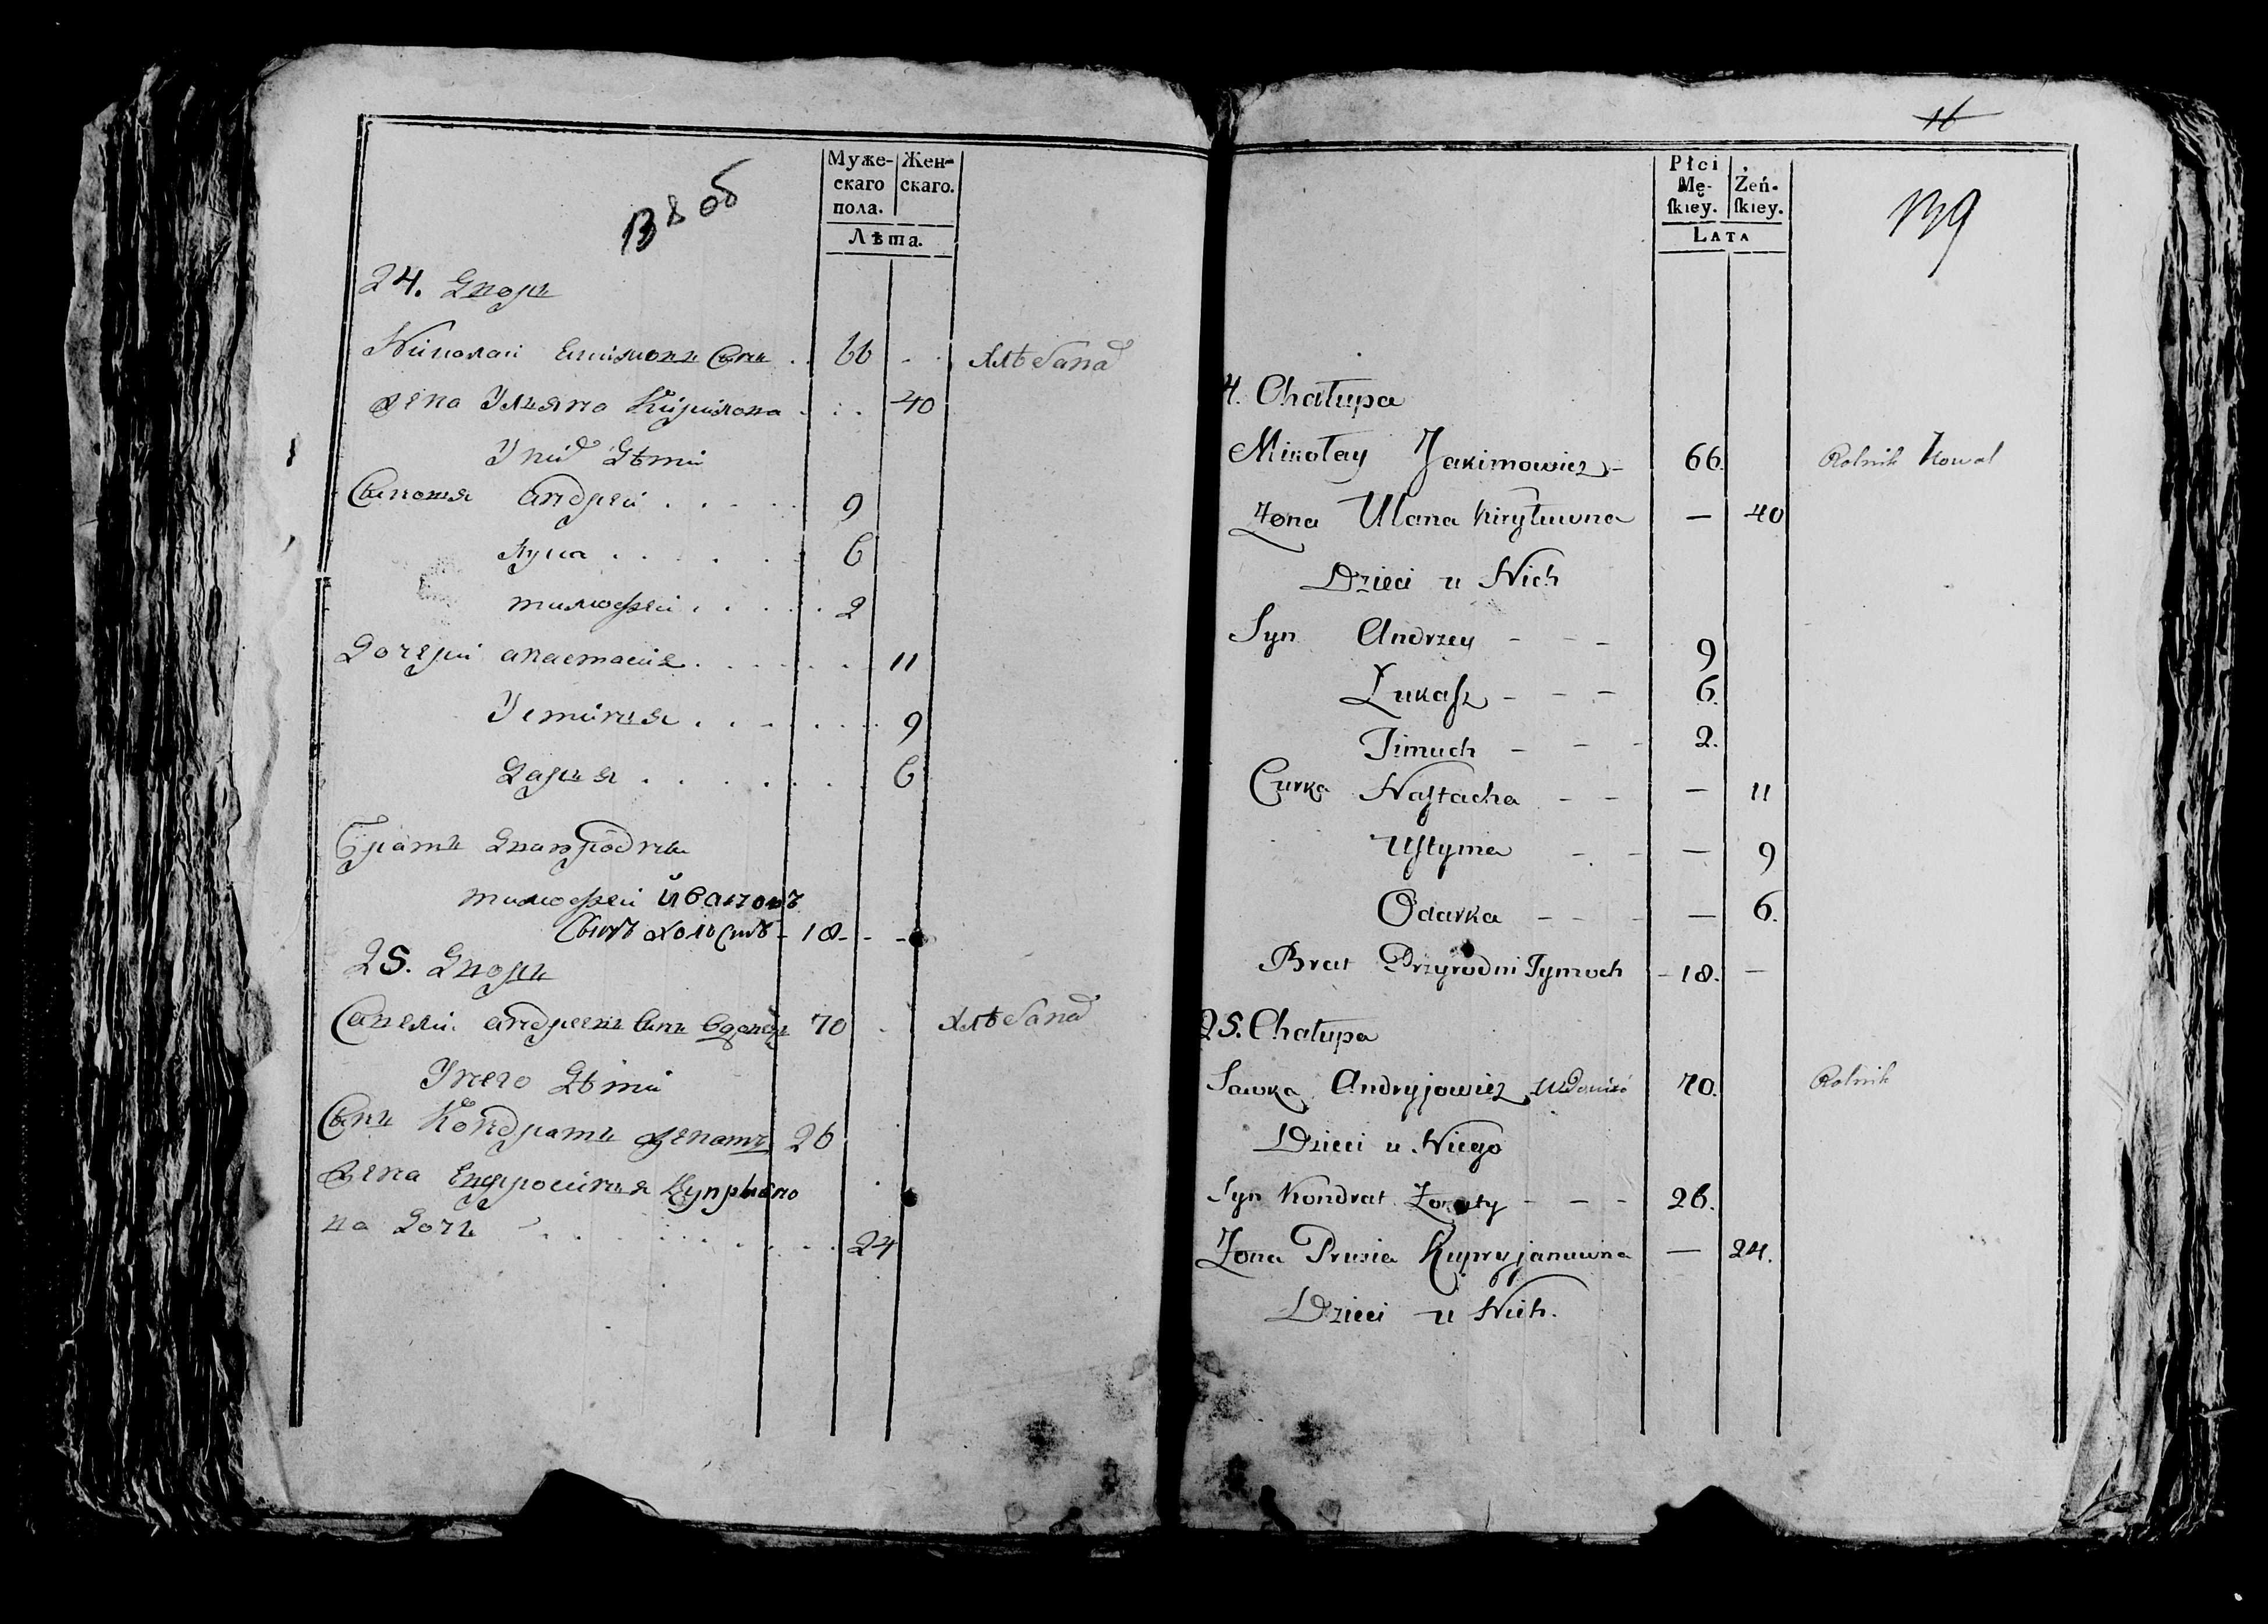 138 об
Муже- Жен-
скаго скаго.
пола.
Лѣта.
24. Дворъ
Николай Екимовъ Сынъ . . 66 - . хлѣбапа
жена Ульяна Кирилова . . . 40
У них Дѣти
Сыновья андрей . . . . . 9
лука . . . . . 6
тимофей . . . . . 2
Дочери анастасия . . . . . . 11
Устиния . . . . . . 9
Дарья . . . . . . 6
Братъ Двоюродны
тимофей ивановъ
Сынъ холостъ - 18 - - -
25. Дворъ
Савелий андреевъ Сынъ вдовецъ 70 . хлѣбапа
У него Дѣти
Сынъ Кондратъ женатъ 26
жена Евфросиния Куприяно
ва Дочь . . . . . . . 24
16
139
Płci Żeń-
Mę- skiey.
skiey.
LATA
4. Chałupa
Mikołay Jakimowicz - 66. Rolnik Kowal
Żona Ulana Kiryłuwna — 40
Dzieci u Nich
Syn Andrzey - - - 9
Łukasz - - - 6.
Timuch - - - 2.
Curka Nastacha - - — 11
Ustyma - - — 9
Odarka - - - — 6.
Brat Przyrodni Tymoch - 18. —
25. Chałupa
Sawka Andryjowicz Wdowiec 70. Rolnik
Dzieci u Niego
Syn Kondrat Żonaty - - - 26.
Żona Prusia Kupryjanuwna — 24.
Dzieci u Nich.